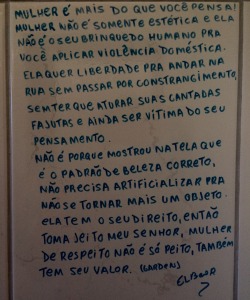 MULHER É MAIS DO QUE VOCÊ PENSA!
MULHER NÃO É SOMENTE ESTÉTICA E ELA
NÃO É O SEU BRINQUEDO HUMANO PRA
VOCÊ APLICAR VIOLÊNCIA DOMÉSTICA.
ELA QUER LIBERDADE PRA ANDAR NA
RUA SEM PASSAR POR CONSTRANGIMENTO,
SEM TER QUE ATURAR SUAS CANTADAS
FAJUTAS E AINDA SER VITIMA DO SEU
PENSAMENTO.
NÃO É PORQUE MOSTROU NA TELA QUE
É O PADRÃO DE BELEZA CORRETO,
NÃO PRECISA ARTIFICIALIZAR PRA
NÃO SE TORNAR MAIS UM OBJETO.
ELA TEM O SEU DIREITO, ENTÃO
TOMA JEITO MEU SENHOR, MULHER
DE RESPEITO NÃO É SÓ PEITO, TAMBÉM
TEM SEU VALOR.